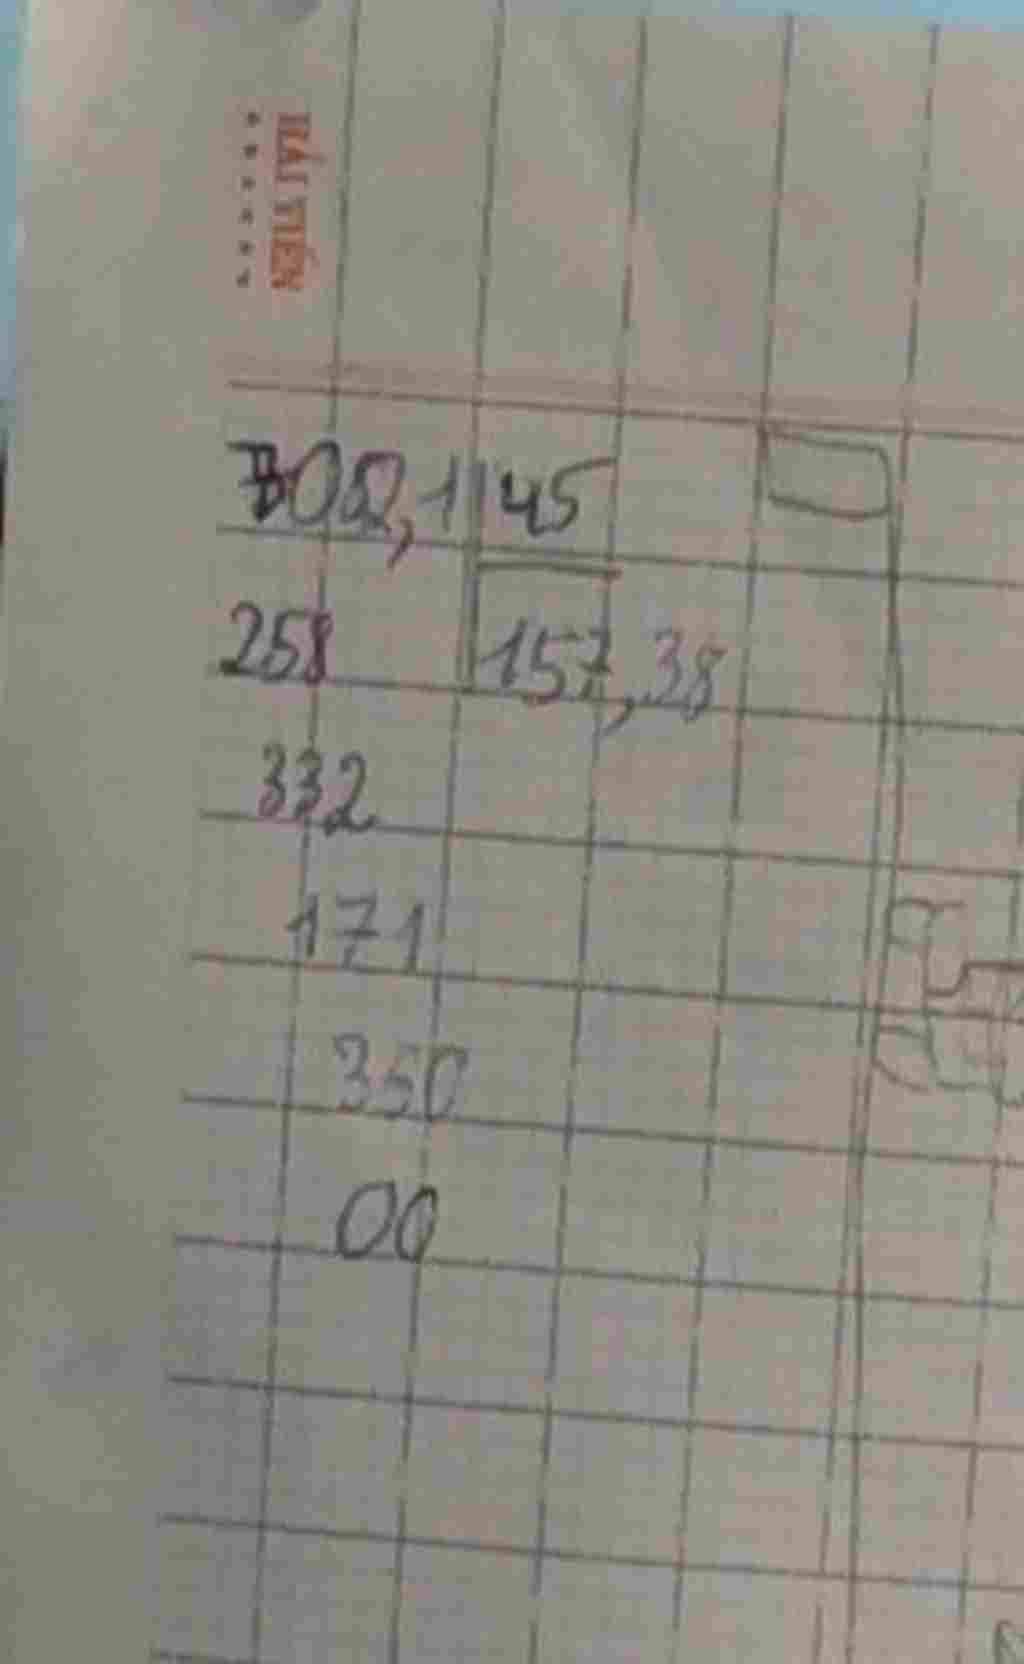 HẢI TIẾN
7082,1 45
258 157,38
332
171
350
00